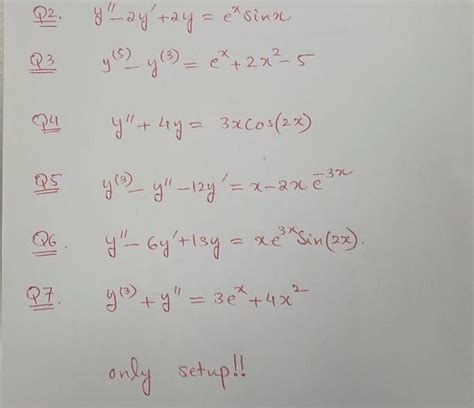 Q2. y'' - 2y' + 2y = eˣ sinx
Q3 y⁽⁵⁾ - y⁽³⁾ = eˣ + 2x² - 5
Q4 y'' + 4y = 3x cos(2x)
Q5 y⁽³⁾ - y'' - 12y' = x - 2x e⁻³ˣ
Q6. y'' - 6y' + 13y = x e³ˣ Sin(2x).
Q7. y⁽³⁾ + y'' = 3eˣ + 4x²
only setup!!